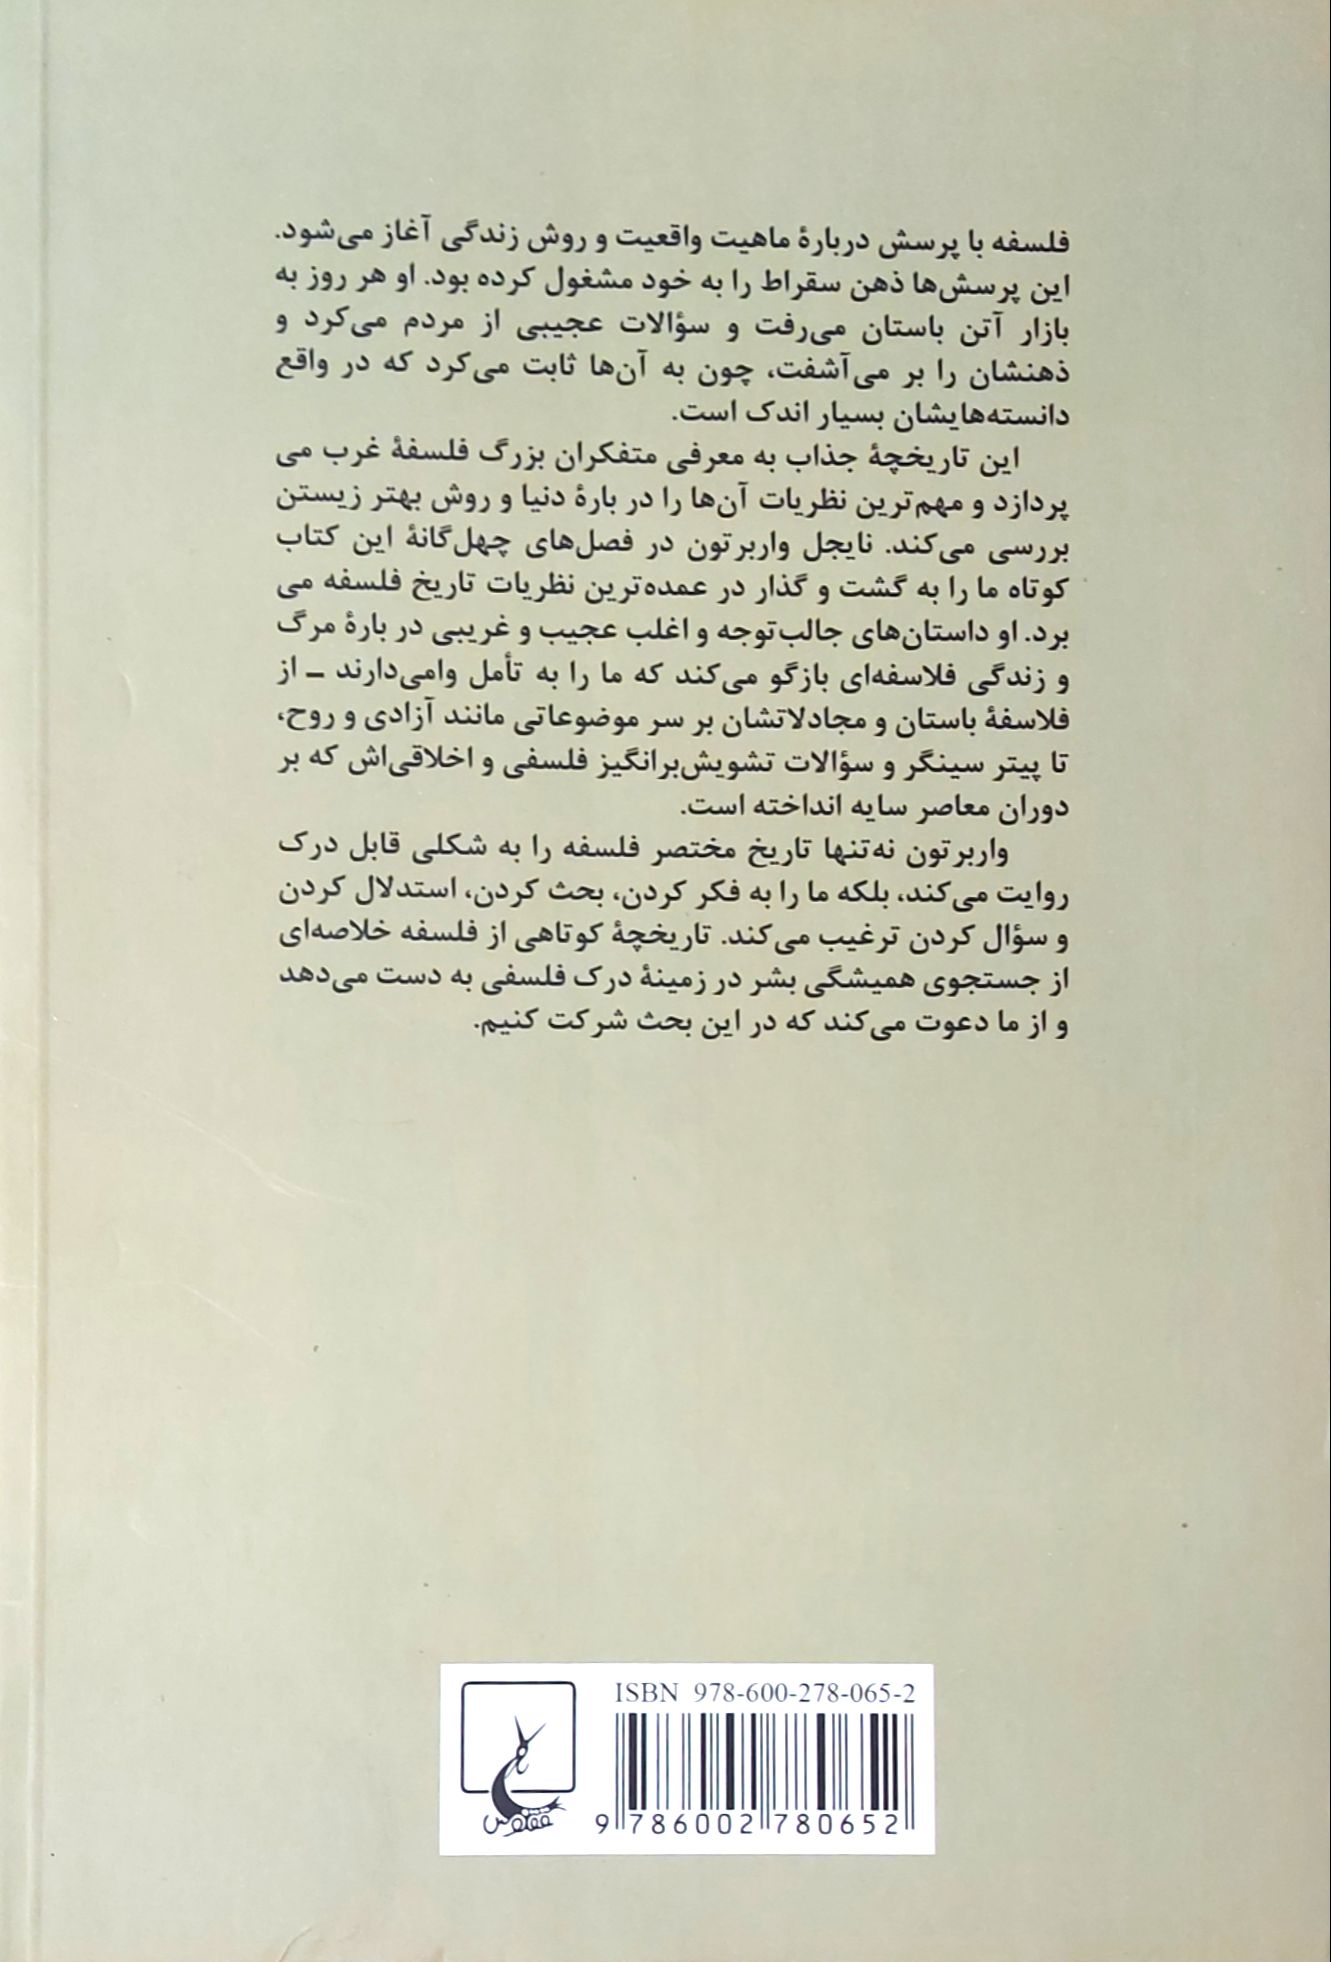 فلسفه با پرسش دربارهٔ ماهیت واقعیت و روش زندگی آغاز می‌شود.
این پرسش‌ها ذهن سقراط را به خود مشغول کرده بود. او هر روز به
بازار آتن باستان می‌رفت و سؤالات عجیبی از مردم می‌کرد و
ذهنشان را بر می‌آشفت، چون به آن‌ها ثابت می‌کرد که در واقع
دانسته‌هایشان بسیار اندک است.
این تاریخچهٔ جذاب به معرفی متفکران بزرگ فلسفهٔ غرب می
پردازد و مهم‌ترین نظریات آن‌ها را در بارهٔ دنیا و روش بهتر زیستن
بررسی می‌کند. نایجل واربرتون در فصل‌های چهل‌گانهٔ این کتاب
کوتاه ما را به گشت و گذار در عمده‌ترین نظریات تاریخ فلسفه می
برد. او داستان‌های جالب‌توجه و اغلب عجیب و غریبی در بارهٔ مرگ
و زندگی فلاسفه‌ای بازگو می‌کند که ما را به تأمل وامی‌دارند ـ از
فلاسفهٔ باستان و مجادلاتشان بر سر موضوعاتی مانند آزادی و روح،
تا پیتر سینگر و سؤالات تشویش‌برانگیز فلسفی و اخلاقی‌اش که بر
دوران معاصر سایه انداخته است.
واربرتون نه‌تنها تاریخ مختصر فلسفه را به شکلی قابل درک
روایت می‌کند، بلکه ما را به فکر کردن، بحث کردن، استدلال کردن
و سؤال کردن ترغیب می‌کند. تاریخچهٔ کوتاهی از فلسفه خلاصه‌ای
از جستجوی همیشگی بشر در زمینهٔ درک فلسفی به دست می‌دهد
و از ما دعوت می‌کند که در این بحث شرکت کنیم.
ISBN 978-600-278-065-2
9 786002 780652
ققنوس